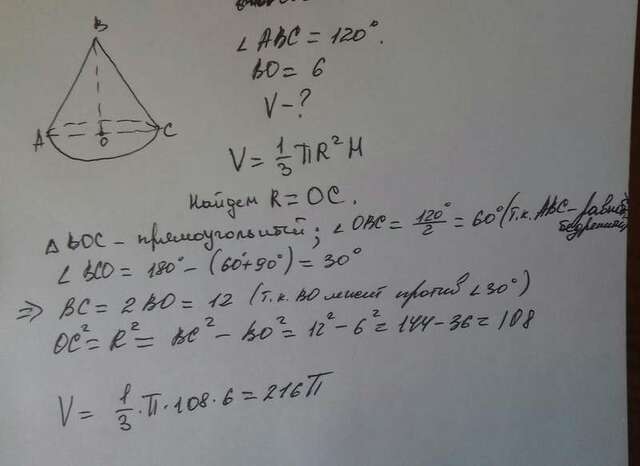 B
A
O
C
∠ ABC = 120°.
BO = 6
V - ?
V = 1/3 πR²H
Найдем R = OC.
Δ BOC - прямоугольный; ∠ OBC = 120°/2 = 60° (т.к. ABC - равнобедренный
∠ BCO = 180° - (60°+90°) = 30°
⇒ BC = 2 BO = 12 (т.к. BO лежит против ∠30°)
OC² = R² = BC² - BO² = 12² - 6² = 144 - 36 = 108
V = 1/3 · π · 108 · 6 = 216π